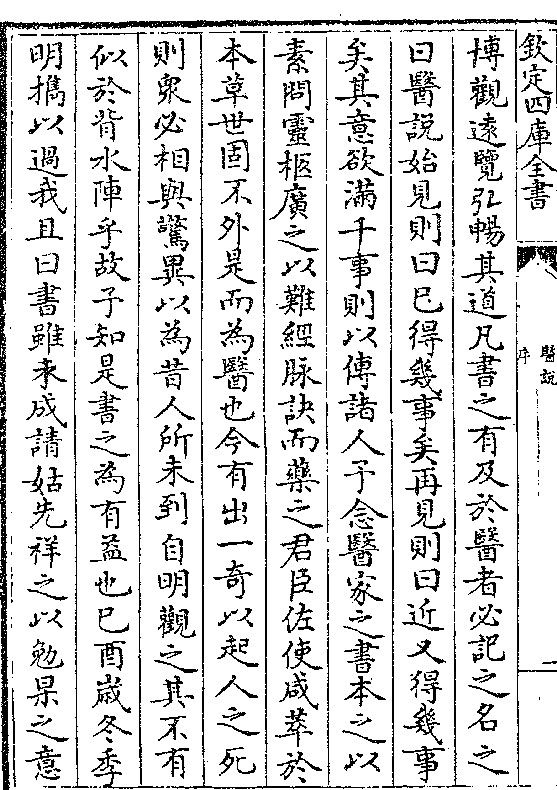 欽定四庫全書
醫說
序
一
博觀遠覽弘暢其道凡書之有及於醫者必記之名之
曰醫說始見則曰已得幾事矣再見則曰近又得幾事
矣其意欲滿千事則以傳諸人予念醫家之書本之以
素問靈樞廣之以難經脉訣而藥之君臣佐使咸萃於
本草世固不外是而為醫也今有出一奇以起人之死
則衆必相與驚異以為昔人所未到自明觀之其不有
似於背水陣乎故予知是書之為有益也己酉嵗冬季
明擕以過我且曰書雖未成請姑先祥之以勉杲之意